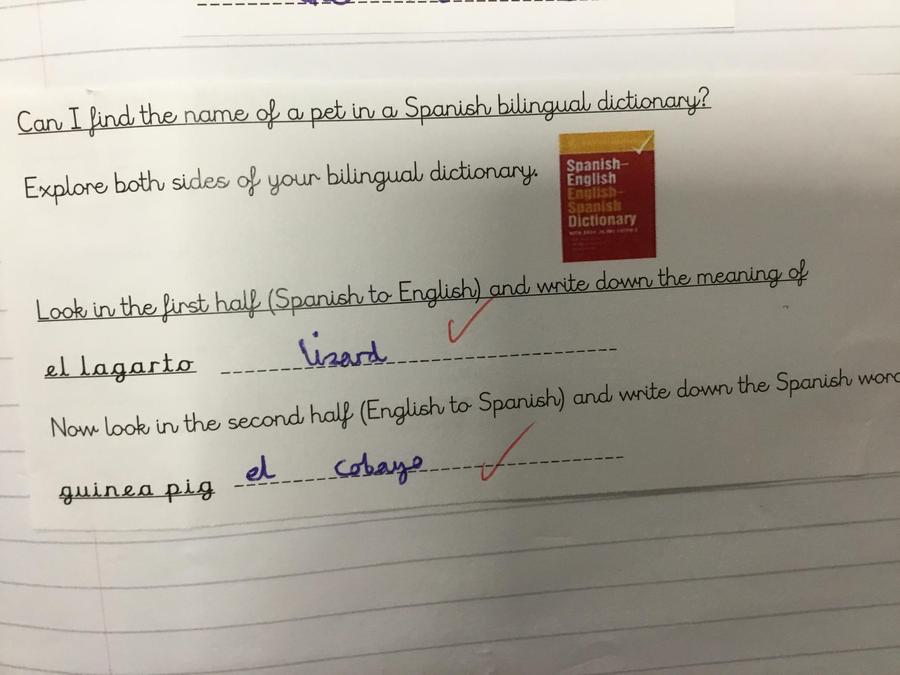 Can I find the name of a pet in a Spanish bilingual dictionary?
Explore both sides of your bilingual dictionary.
Spanish-
English
English-
Spanish
Dictionary
Look in the first half (Spanish to English) and write down the meaning of
el lagarto lizard
Now look in the second half (English to Spanish) and write down the Spanish word
guinea pig el cobayo